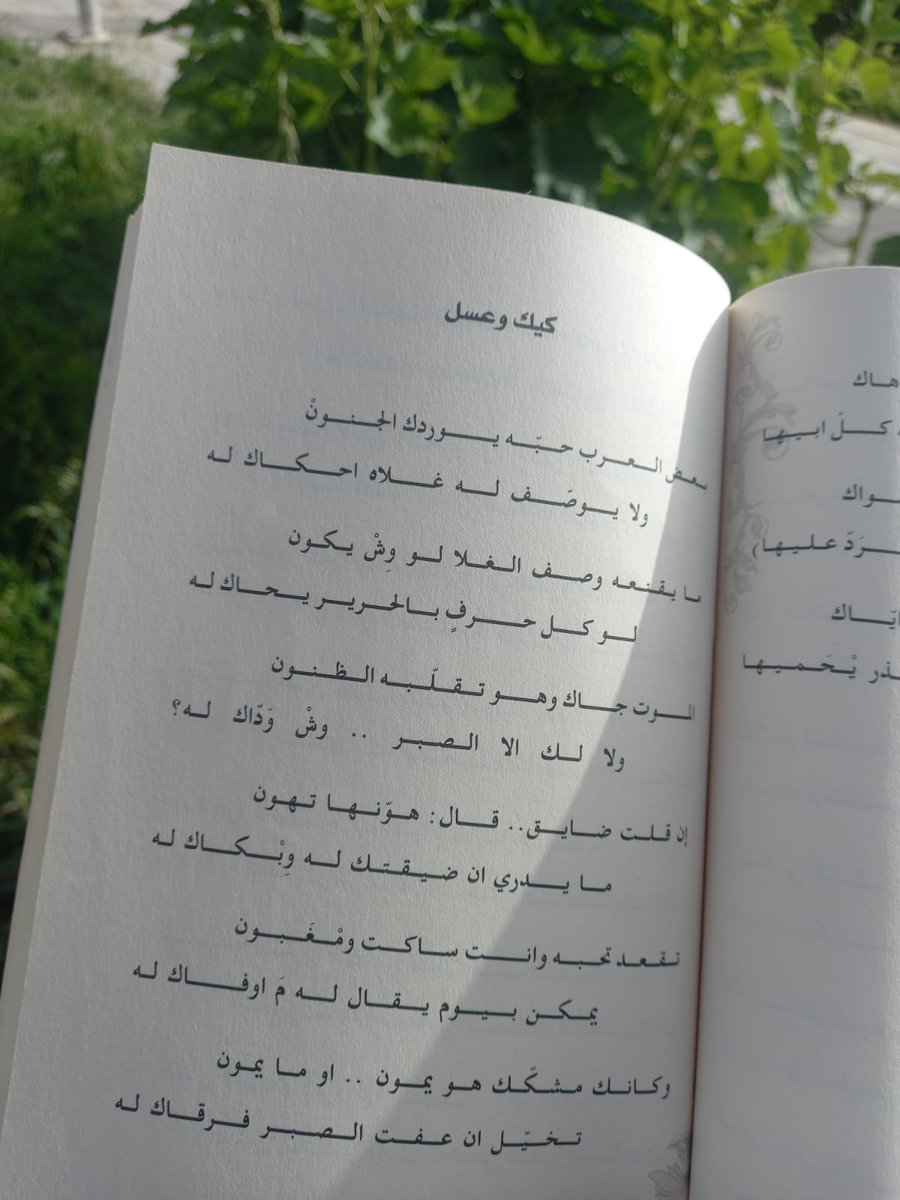 كيك وعسل
بعض العرب حبّه يوردك الجنونْ
ولا يوصّف له غلاه احكاك له
ما يقنعه وصف الغلا لو وِشْ يكون
لو كل حرفٍ بالحرير يحاك له
الموت جاك وهو تقلّبه الظنون
ولا لك الا الصبر .. وشْ وَدّاك له؟
إن قلت ضايق.. قال: هوّنها تهون
ما يدري ان ضيقتك له وِبْكاك له
تقعد تحبه وانت ساكت ومْغَبون
يمكن بيوم يقال له مَ اوفاك له
وكانك مشكّك هو يمون .. او ما يمون
تخيّل ان عفت الصبر فرقاك له
هاك
كلّ ابيها
واك
رَدّ عليها)
ايّاك
ذر يْحَميها